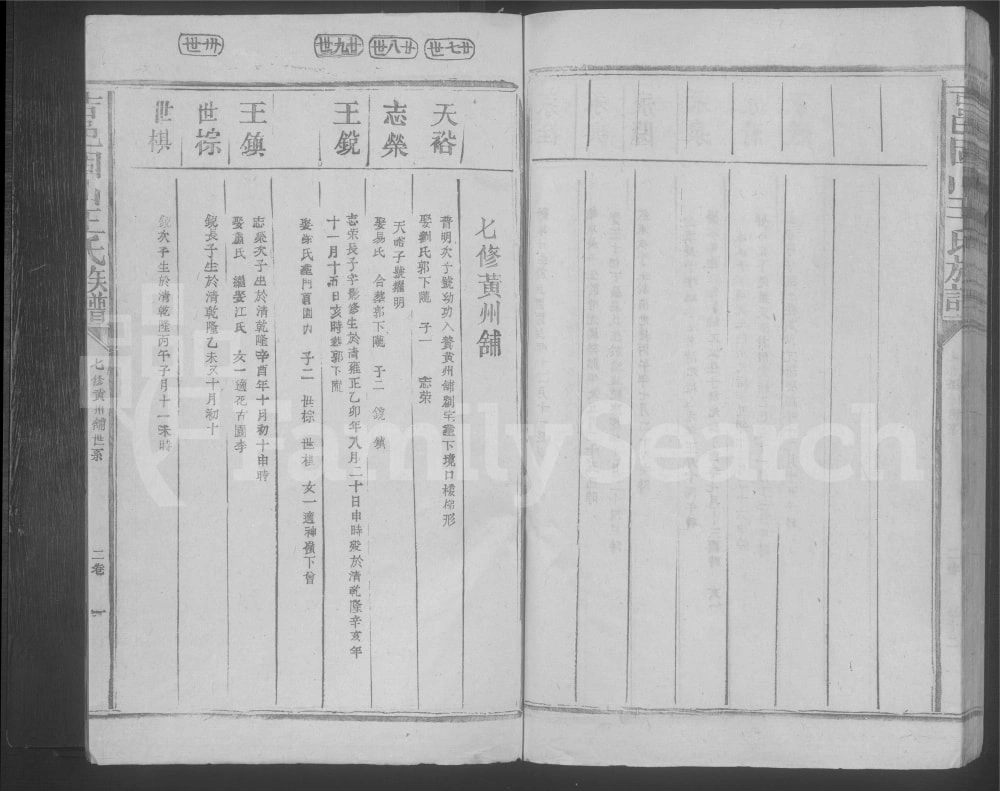 廿七世
廿八世
廿九世
卅世
七修黃州舖
天裕
普明次子號功功入贅黃州舖劉宅
娶劉氏郭下隴 子一 志荣
志榮
天裕子號耀明
娶易氏 合葬郭下隴 子二 銳 鎮
王銳
志荣長子字彩修生於清雍正乙卯年八月二十日申時歿於清乾隆辛亥年
十一月十五日亥時葬郭下隴
子二 世棕 世棋 女一適神嶺下曾
王鎮
志榮次子生於清乾隆辛酉年十月初十申時
娶蕭氏 繼娶江氏 女一適花古園李
世棕
銳長子生於清乾隆乙未又十月初十
世棋
銳次子生於清乾隆丙午子月十一未時
王氏族譜
七修黃州舖世系
二卷
一
FamilySearch